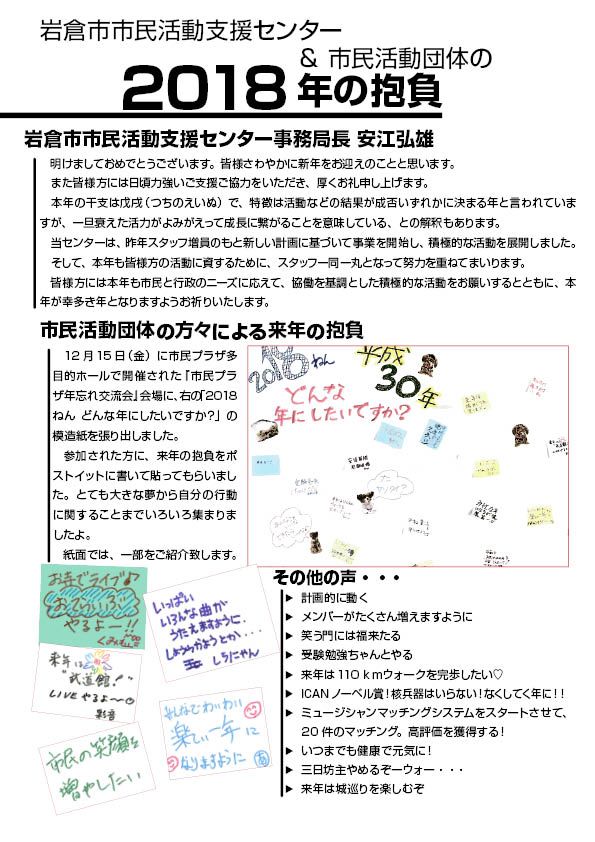 岩倉市市民活動支援センター
& 市民活動団体の
2018年の抱負
岩倉市市民活動支援センター事務局長 安江弘雄
明けましておめでとうございます。皆様さわやかに新年をお迎えのことと思います。
また皆様方には日頃力強いご支援ご協力をいただき、厚くお礼申し上げます。
本年の干支は戊戌（つちのえいぬ）で、特徴は活動などの結果が成否いずれかに決まる年と言われていま
すが、一旦衰えた活力がよみがえって成長に繋がることを意味している、との解釈もあります。
当センターは、昨年スタッフ増員のもと新しい計画に基づいて事業を開始し、積極的な活動を展開しました。
そして、本年も皆様方の活動に資するために、スタッフ一同一丸となって努力を重ねてまいります。
皆様方には本年も市民と行政のニーズに応えて、協働を基調とした積極的な活動をお願いするとともに、本
年が幸多き年となりますようお祈りいたします。
市民活動団体の方々による来年の抱負
12月15日（金）に市民プラザ多
目的ホールで開催された『市民プラ
ザ年忘れ交流会』会場に、右の｢2018
ねん どんな年にしたいですか？」の
模造紙を張り出しました。
参加された方に、来年の抱負をポ
ストイットに書いて貼ってもらいまし
た。とても大きな夢から自分の行動
に関することまでいろいろ集まりま
したよ。
紙面では、一部をご紹介致します。
2018ねん
平成
30年
どんな
年にしたいですか？
お寺でライブ♪
おてらいぶ
やるよー!!
来年は
"武道館!"
LIVEやるよ〜
影音
市民の笑顔を
増やしたい
いっぱい
いろんな曲が
うたえますように.
しょうらかようとか・・・
しろにゃん
みんなでわいわい
楽しい一年に
なりますように
その他の声・・・
▶ 計画的に動く
▶ メンバーがたくさん増えますように
▶ 笑う門には福来たる
▶ 受験勉強ちゃんとやる
▶ 来年は110kmウォークを完歩したい♡
▶ ICANノーベル賞！核兵器はいらない！なくしてく年に！！
▶ ミュージシャンマッチングシステムをスタートさせて、
20件のマッチング。高評価を獲得する！
▶ いつまでも健康で元気に！
▶ 三日坊主やめるぞーウォー・・・
▶ 来年は城巡りを楽しむぞ